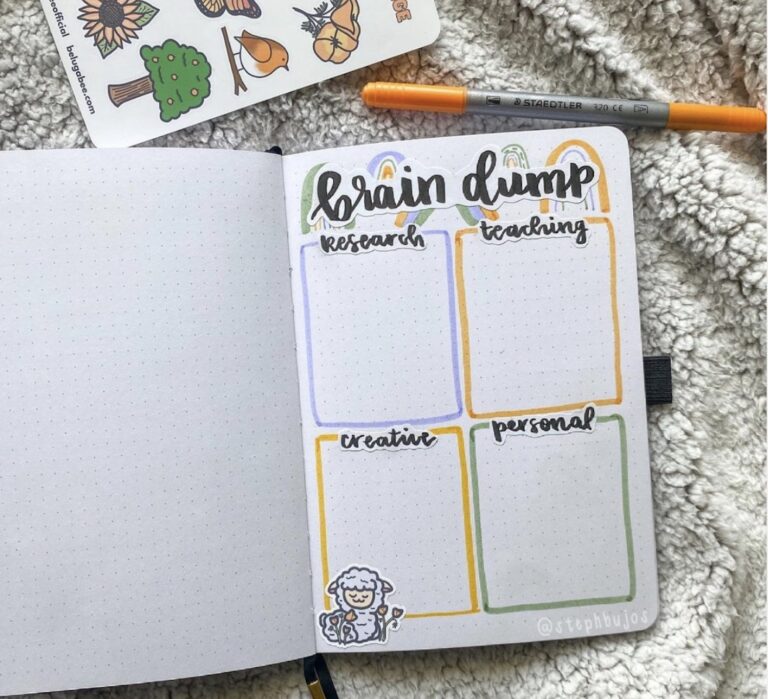 eeofficial
belugabee.com
ICE
STAEDTLER 320 CE
brain dump
Research
teaching
creative
personal
@stephbujos